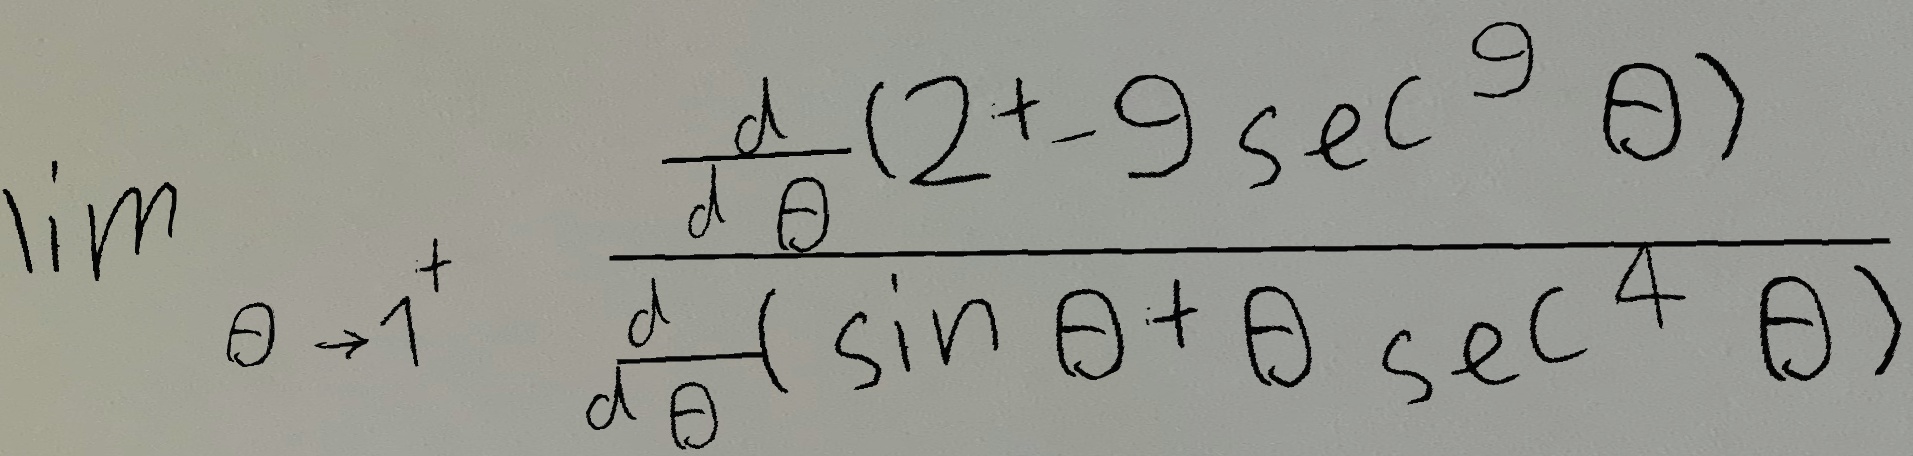 \lim_{\theta \to 1^+} \frac{\frac{d}{d\theta}(2 + -9 \sec^9 \theta)}{\frac{d}{d\theta}(\sin \theta + \theta \sec^4 \theta)}